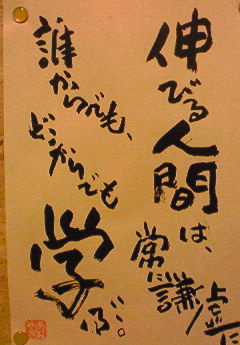 伸びる人間は、
常に謙虚に
誰からでも、
どこからでも
学ぶ。